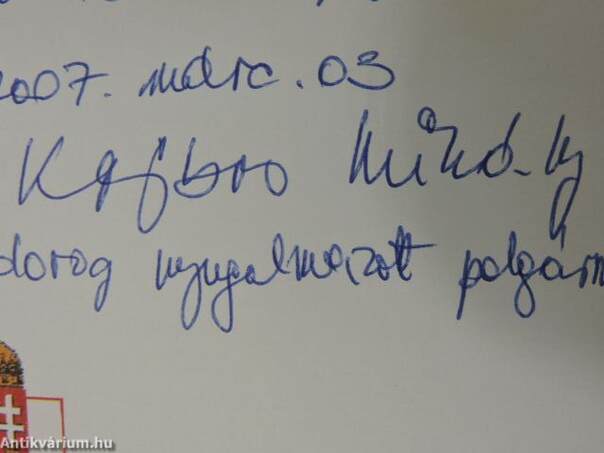 2007. márc. 03
Mihály
dorog nyugalmazott polgárm
Antikvárium.hu